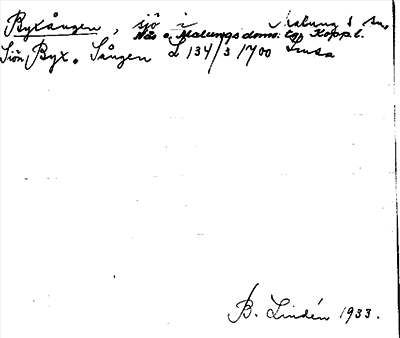 Byxången, sjö i Malung s sn,
Nås o. Malungs doms. tg, Koppb. l.
Sjön Byx. Sången L 134/3 1700 Lusa
B. Lindén 1933.